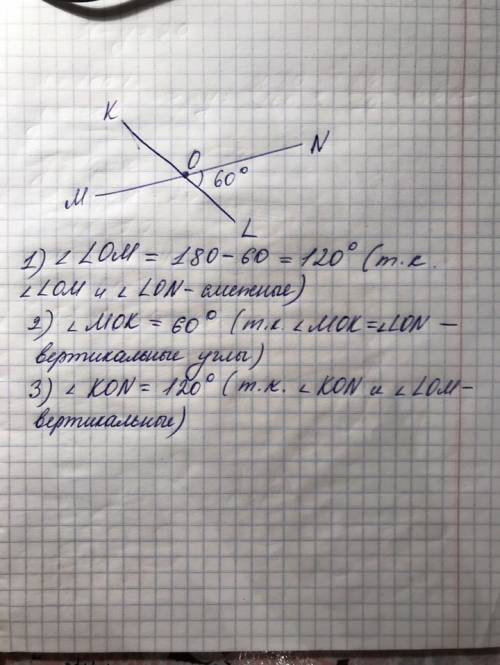 K
O
N
60°
M
L
1) ∠LOM = 180-60 = 120° (т.к.
∠LOM и ∠LON - смежные)
2) ∠MOK = 60° (т.к. ∠MOK=∠LON —
вертикальные углы)
3) ∠KON = 120° (т.к. ∠KON и ∠LOM-
вертикальные)